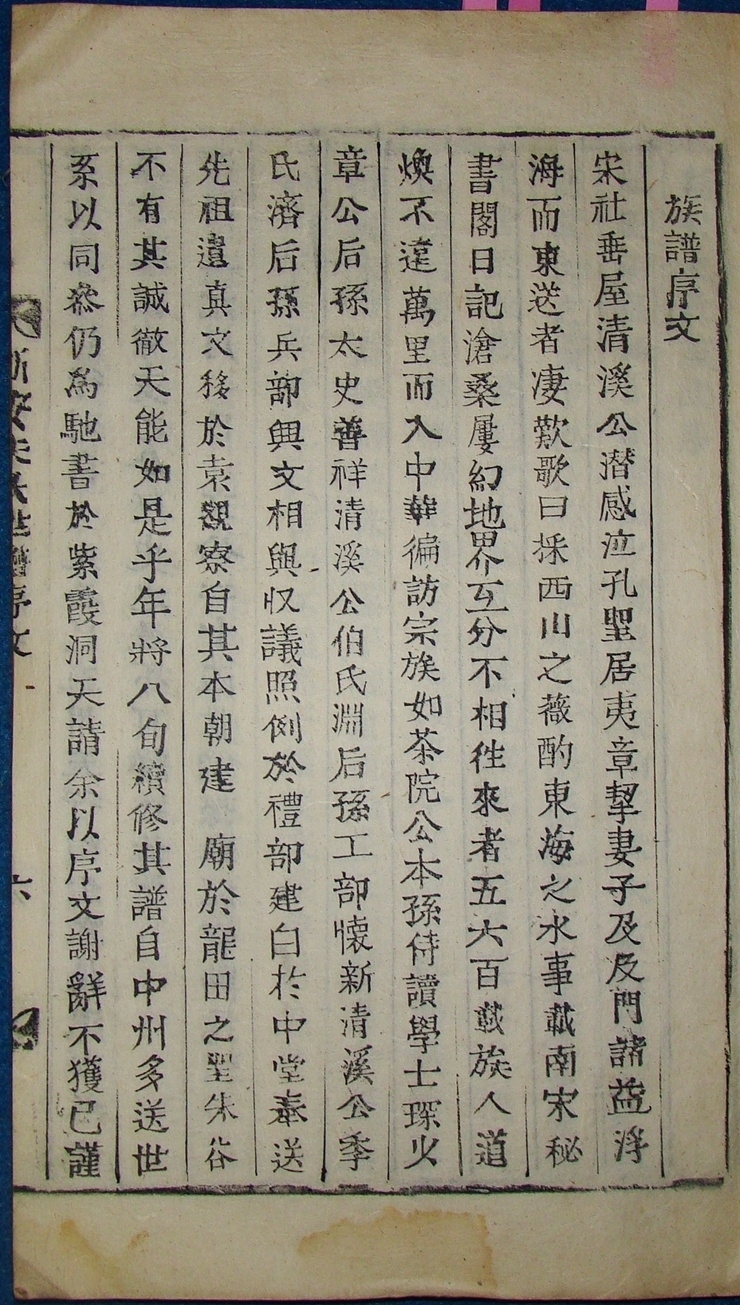 族譜序文
宋社垂屋清溪公潜感泣孔聖居夷章挈妻子及及門諸益浮
海而東送者凄歎歌曰採西山之薇酌東海之水事載南宋秘
書閣日記滄桑屢幻地界互分不相徃來者五六百載族人道
煥不違萬里而入中華徧訪宗族如茶院公本孫侍讀學士琛火
章公后孫太史善祥清溪公伯氏淵后孫工部懷新清溪公季
氏濟后孫兵部興文相與収議照例於禮部建白扵中堂奉送
先祖遺真文移於袁觀察自其本朝建 廟於龍田之聖朱谷
不有其誠徹天能如是乎年將八旬續修其譜自中州多送世
系以同叅仍為馳書於紫霞洞天請余以序文謝辭不獲已謹
新安朱氏世譜序文 六